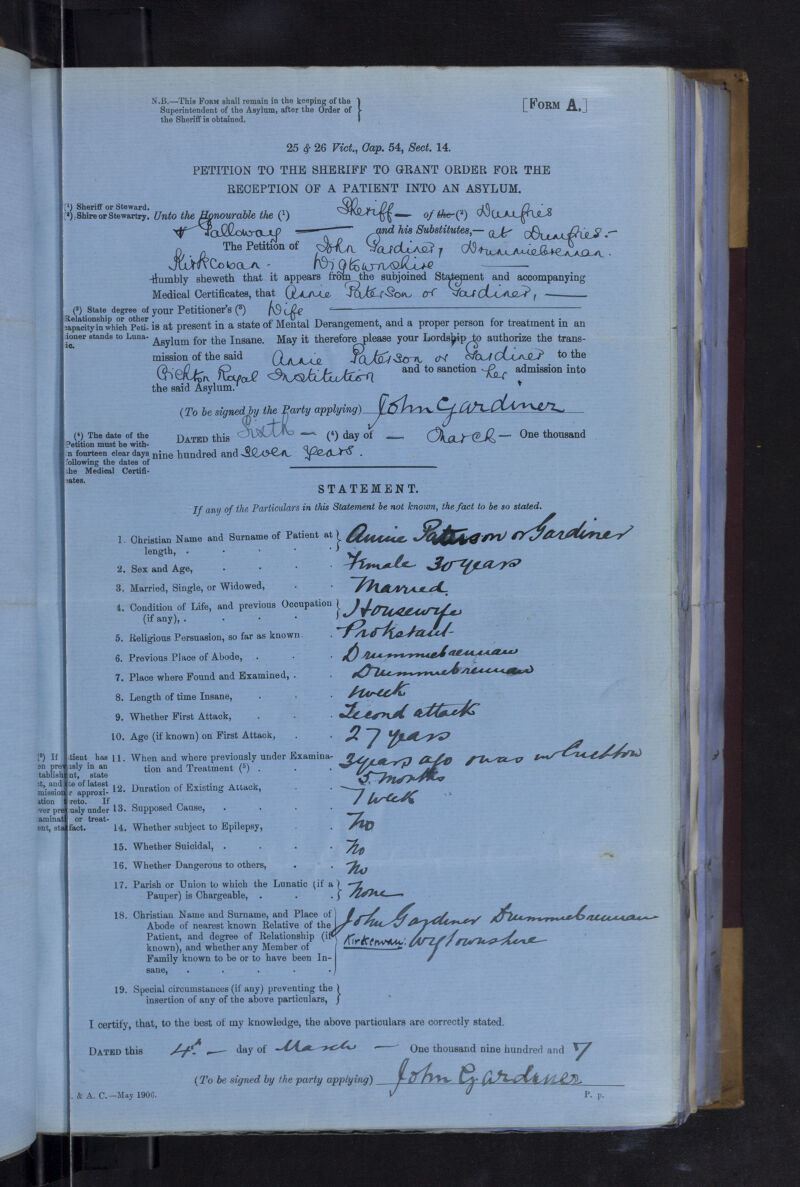 N.B.—This Form shall remain in the keeping of the
Superintendent of the Asylum, after the Order of
the Sheriff is obtained.
[Form A.]
25 & 26 Vict., Cap. 54, Sect. 14.
PETITION TO THE SHERIFF TO GRANT ORDER FOR THE
RECEPTION OF A PATIENT INTO AN ASYLUM.
(¹) Sheriff or Steward.
(²) Shire or Stewartry.
Unto the Honourable the (¹) Sheriff — of the (²) Dumfries
& Galloway — and his Substitutes,— at Dumfries.—
The Petition of John Gardiner, Drummiebrennan.
Kirkcowan. Wigtownshire
Humbly sheweth that it appears from the subjoined Statement and accompanying
Medical Certificates, that Annie Paterson or Gardiner, —
(³) State degree of
Relationship or other
capacity in which Peti-
tioner stands to Luna-
tic.
your Petitioner's (³) Wife
is at present in a state of Mental Derangement, and a proper person for treatment in an
Asylum for the Insane. May it therefore please your Lordship to authorize the trans-
mission of the said Annie Paterson or Gardiner to the
Crichton Royal Institution and to sanction her admission into
the said Asylum.
(To be signed by the Party applying) John Gardiner
(⁴) The date of the
Petition must be with-
in fourteen clear days
following the dates of
the Medical Certifi-
cates.
Dated this Sixth — (⁴) day of — March — One thousand
nine hundred and Seven Years.
STATEMENT.
If any of the Particulars in this Statement be not known, the fact to be so stated.
1. Christian Name and Surname of Patient at
length, . Annie Paterson or Gardiner
2. Sex and Age, Female 30 years
3. Married, Single, or Widowed, Married.
4. Condition of Life, and previous Occupation
(if any), . Housewife
5. Religious Persuasion, so far as known. Protestant
6. Previous Place of Abode, . Drummiebrennan
7. Place where Found and Examined, . Drummiebrennan
8. Length of time Insane, 1 week
9. Whether First Attack, Second attack
10. Age (if known) on First Attack, 27 years
(⁵) If tient has
en prev usly in an
tablish nt, state
t, and te of latest
mission r approxi-
ation reto. If
ver pre usly under
aminat or treat-
ent, sta fact.
11. When and where previously under Examina-
tion and Treatment (⁵) . 3 years ago & was in Crichton
5 months
12. Duration of Existing Attack, 1 week
13. Supposed Cause,
14. Whether subject to Epilepsy, No
15. Whether Suicidal, . No
16. Whether Dangerous to others, No
17. Parish or Union to which the Lunatic (if a
Pauper) is Chargeable, . None
18. Christian Name and Surname, and Place of
Abode of nearest known Relative of the
Patient, and degree of Relationship (if
known), and whether any Member of
Family known to be or to have been In-
sane, .
John Gardiner Drummiebrennan
Kirkcowan: Wigtownshire
19. Special circumstances (if any) preventing the
insertion of any of the above particulars,
I certify, that, to the best of my knowledge, the above particulars are correctly stated.
Dated this 4th — day of March — One thousand nine hundred and 7
(To be signed by the party applying) John Gardiner
. & A. C.—May 1906.
P. p.